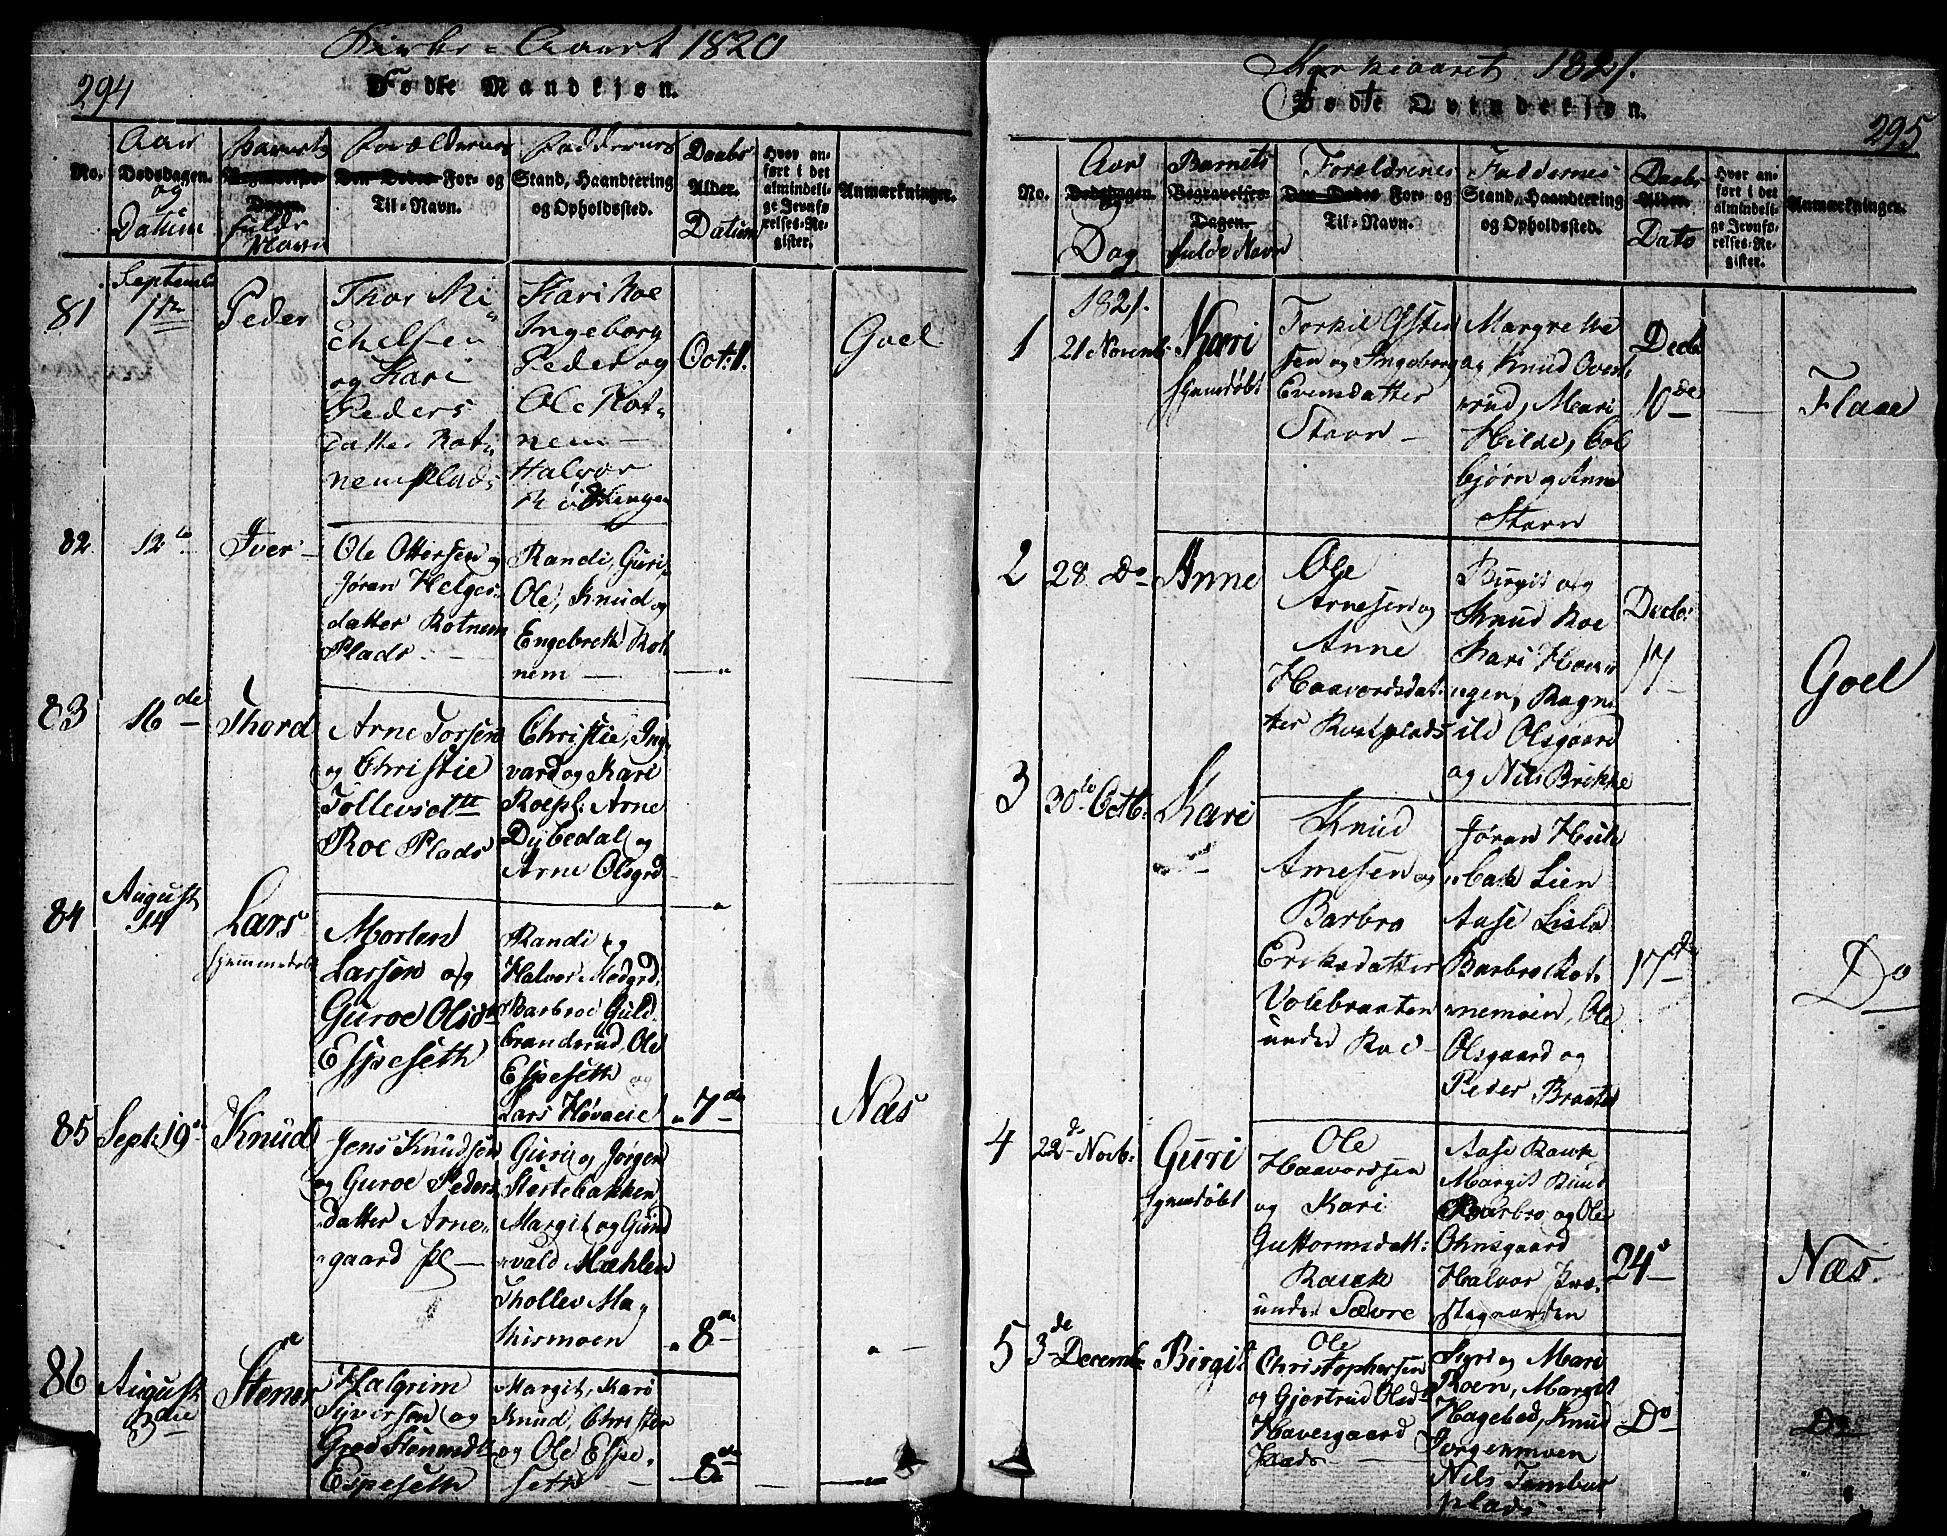 Kirke-Aaret 1820
294
Fødte Mandkjøn.
No.
Aar
Dødsdagen.
og
Datum
Barnets
Begravelses
Dagen.
fulde
Navn
Forældrenes
Den Dødes For- og
Til-Navn.
Faddernes
Stand, Haandtering
og Opholdssted.
Daabs
Alder.
Datum
Hvor an-
ført i det
almindeli-
ge Jevnfø-
relses-Re-
gister.
Anmærkninger.
81
September
1ste
Peder
Thor Mi-
chelsen
og Kari
Peders
datter Rot-
nemplads
Kari Roe
Ingeborg
Peder og
Ole Rot-
nem
Halvor
Oct: 1.
Goel
82
12te
Iver
Ole Ottersen og
Jøran Helges-
datter Rotnem
Plads
Randi, Guri,
Ole, Knud og
Engebreth Rot-
nem
83
16de
Thord
Arne Torsen
og Christie
Tollevsdtt
Roe Plads
Christie, Ing-
vard og Kari
Roepl. Arne
Dybedal og
Arne Olsgrd
84
August
14
Lars
hjemmedøbt
Morten
Larsen og
Guroe Olsdt
Espeseth
Randi og
Halvor Modgrd
Barbroe Guld-
brandsrud, Ole
Espeseth og
Lars Høvaeie
7de
Næs
85
Sept: 19
Knud
Jens Knudsen
og Guroe Peders
datter Arne-
gaard pl
Guri og Jørgen
Støttebakken
Margit og Gund
vald Mæhlen
Thollev Ma-
8de
86
August
3die
Stener
Halgrim
Syversen og
Groe Stenersdt
Espeseth
Margit, Kari
Knud, Christen
og Ole Espe-
seth
8de
Kirkeaaret 1821.
Fødte Qvindekjøn.
295
No.
Aar
Dødsdagen.
Dag
Barnets
Begravelses-
Dagen.
fulde Navn
Foreldrenes
Den Dødes For- og
Til-Navn.
Faddernes
Stand, Haandtering
og Opholdssted.
Daabs
Alder.
Dato
Hvor an-
ført i det
almindeli-
ge Jevnfø-
relses-Re-
gister.
Anmærkninger.
1
1821.
21 Novemb:
Kari
hjemdøbt
Torkil Østen
sen og Ingeborg
Evensdatter
Stavn
Margrethe
og Knud Over
rud, Mari
Hilde, Col
bjørn og Anne
Stavn
Decb
10de
Flaae
2
28 Do
Anne
Ole
Arnesen og
Anne
Haavordsdat-
ter Roeplads
Birgit og
Knud Roe
Kari Hovin
ngen, Ragn
ild Olsgaard
og Nils Brekke
Decb:
17
Goel
3
30te Octb:
Kari
Knud
Arnesen og
Barbro
Eriksdatter
Volebraaten
under Roe
Jøran Huk
bak Lien
Aase Lislø
Barbro Rot-
nemoen, Ole
Olsgaard og
Peder Braaten
17de
Do
4
22de Novb:
Guri
hjemdøbt
Ole
Haavordsen
og Kari
Guttormsdatt:
Rauk
under Sævre
Aase Rauk
Margit Ruud
Barbro og Ole
Ohnsgaard
Halvor Præ-
stegaarden
24e
Næs.
5
3de Decemb:
Birgit
Ole
Christophersen
og Gjertrud Olsd
Haversgaard
Plads
Syri og Mari
Roen, Margit
Hagebed, Knud
Jorgenmoen
Nils Tambur
plads
Do
Do